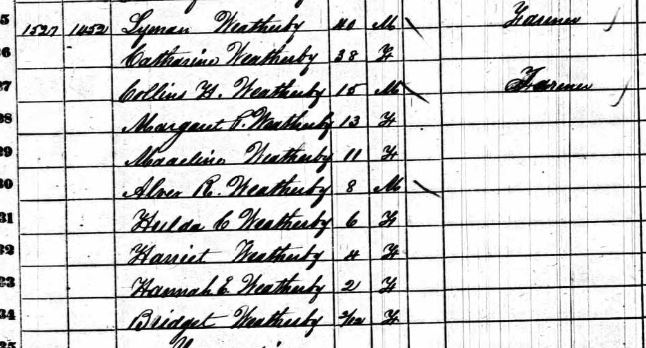 5 1527 1452 Lyman Weatherby 40 M Farmer
26 Catharine Weatherby 38 F
27 Collins H. Weatherby 15 M Farmer
28 Margaret P. Weatherby 13 F
29 Weatherby 11 F
30 R. Weatherby 8 M
31 Hulda C Weatherby 6 F
32 Harriet Weatherby 4 F
33 Hannah E Weatherby 2 F
34 Bridget Weatherby 2/12 F
35